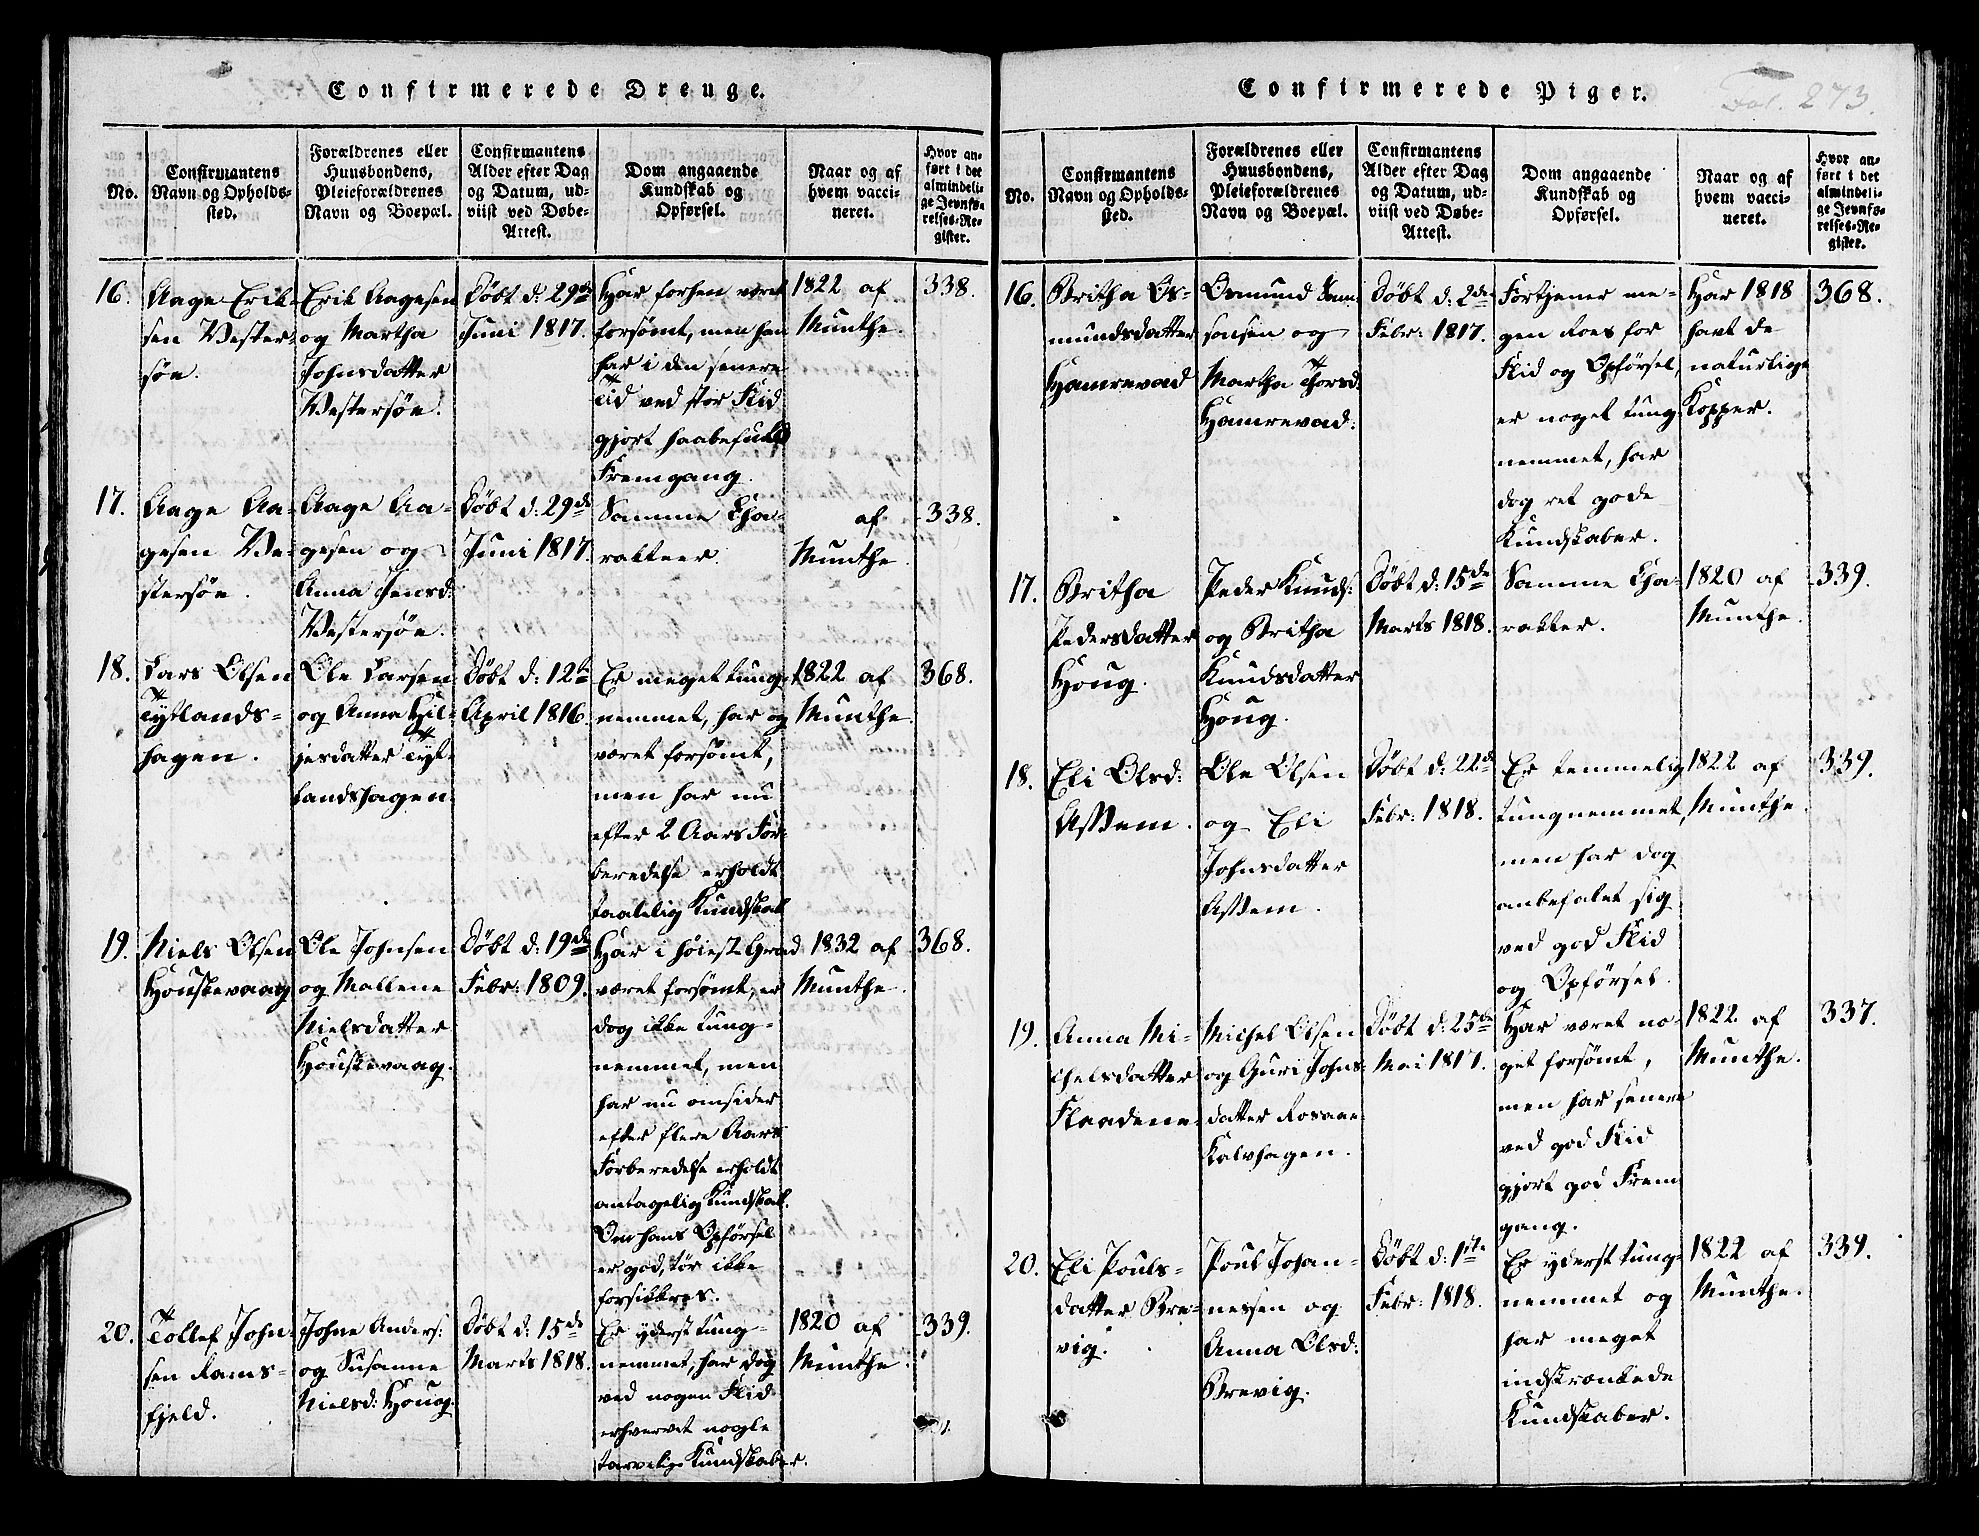 Confirmerede Drenge.
No.
Confirmantens
Navn og Opholds-
sted.
Forældrenes eller
Huusbondens,
Pleieforældrenes
Navn og Boepæl.
Confirmantens
Alder efter Dag
og Datum, ud-
viist ved Døbe-
Attest.
Dom angaaende
Kundskab og
Opførsel.
Naar og af
hvem vacci-
neret.
Hvor an-
ført i det
almindeli-
ge Jevnfø-
relses-Re-
gister.
16.
Aage Erik-
sen Vester-
søe.
Erik Aagesen
og Martha
Johnsdatter
Vestersøe.
Døbt d: 29de
Juni 1817.
Har forhen været
forsømt, men han
har i den senere
Tid ved stor Flid
gjort haabefuld
Fremgang.
1822 af
Munthe.
338.
17.
Aage Aa-
gesen Ve-
stersøe.
Aage Aa-
gesen og
Anna Jensd:
Vestersøe.
Døbt d: 29de
Juni 1817.
Samme Cha-
rakteer.
af
Munthe.
338.
18.
Lars Olsen
Tytlands-
hagen.
Ole Larsen
og Anna Hil-
jesdatter Tyt-
landshagen.
Døbt d: 12te
April 1816.
Er meget tung-
nemmet, har og
været forsømt,
men har nu
efter 2 Aars For-
beredelse erholdt
taalelig Kundskab
1822 af
Munthe.
368.
19.
Niels Olsen
Houskevaag
Ole Johnsen
og Mallene
Nielsdatter
Houskevaag.
Døbt d: 19de
Febr: 1809.
Har i høiest Grad
været forsømt, er
dog ikke tung-
nemmet, men
har nu omsider
efter flere Aars
Forberedelse erholdt
antagelig Kundskab.
Om hans Opførsel
er god, tør ikke
forsikkres.
1832 af
Munthe.
368.
20.
Tollef John-
sen Rams-
fjeld.
Johne Anders:
og Susanne
Nielsd: Houg.
Døbt d: 15de
Marts 1818.
Er yderst tung-
nemmet, har dog
ved nogen Flid
erhvervet nogle
tarvelige Kundskaber.
1820 af
Munthe.
339.
Confirmerede Piger.
Fol. 273.
No.
Confirmantens
Navn og Opholds-
sted.
Forældrenes eller
Huusbondens,
Pleieforældrenes
Navn og Boepæl.
Confirmantens
Alder efter Dag
og Datum, ud-
viist ved Døbe-
Attest.
Dom angaaende
Kundskab og
Opførsel.
Naar og af
hvem vacci-
neret.
Hvor an-
ført i det
almindeli-
ge Jevnfø-
relses-Re-
gister.
16.
Britha Os-
mundsdatter
Hamrevad
Osmund Sam-
sonsen og
Martha Thorsd:
Hamrevad.
Døbt d: 2de
Febr: 1817.
Fortjener me-
gen Roes for
Flid og Opførsel,
er noget tung-
nemmet, har
dog ret gode
Kundskaber.
Har 1818
havt de
naturlige
Kopper.
368.
17.
Britha
Pedersdatter
Houg.
Peder Knuds:
og Britha
Knudsdatter
Houg.
Døbt d: 15de
Marts 1818.
Samme Cha-
rakter.
1820 af
Munthe.
339.
18.
Eli Olsd:
Assem.
Ole Olsen
og Eli
Johnsdatter
Assem.
Døbt d: 22de
Febr: 1818.
Er temmelig
tungnemmet,
men har dog
anbefalet sig
ved god Flid
og Opførsel.
1822 af
Munthe.
339.
19.
Anna Mi-
chelsdatter
Flaadene
Michel Olsen
og Guri Johns-
datter
Kalvhagen.
Døbt d: 25de
Mai 1817.
Har været no-
get forsømt,
men har senere
ved god Flid
gjort god Frem-
gang.
1822 af
Munthe.
337.
20.
Eli Pouls-
datter Bre-
vig.
Poul Johan-
nessen og
Anna Olsd:
Brevig.
Døbt d: 1ste
Febr: 1818.
Er yderst tung-
nemmet og
har meget
indskrænkede
Kundskaber.
1822 af
Munthe.
339.